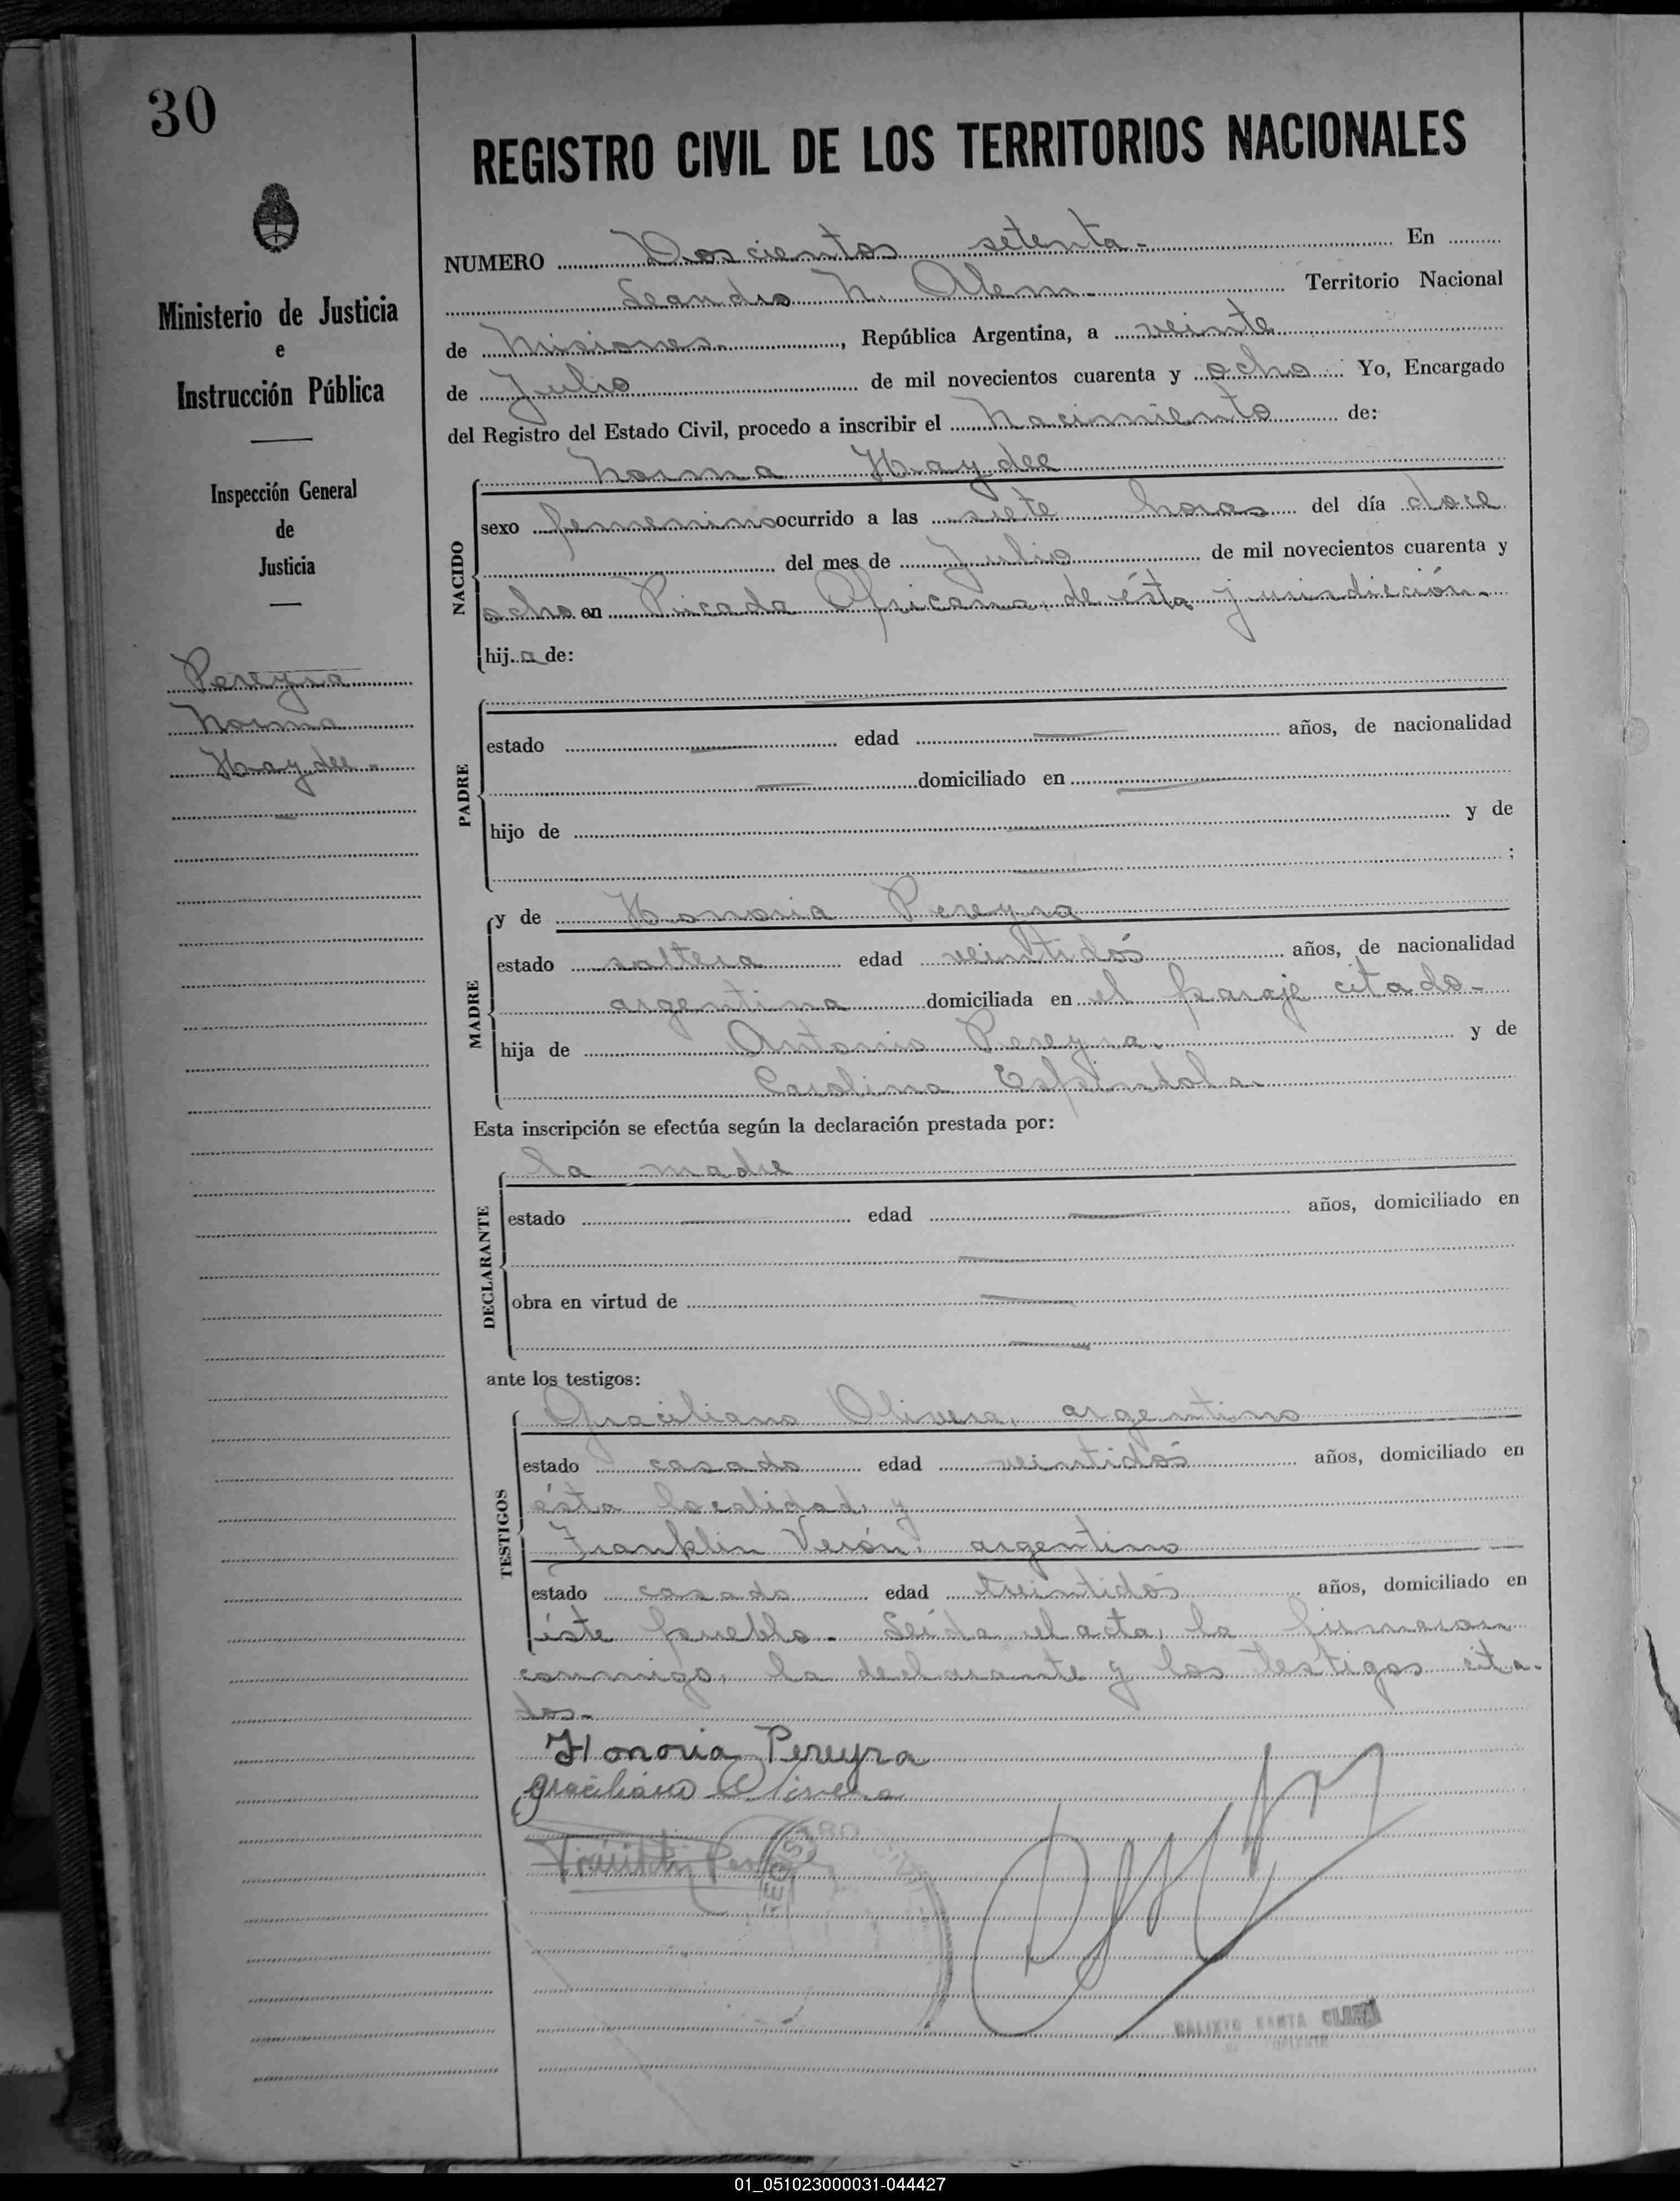 30
REGISTRO CIVIL DE LOS TERRITORIOS NACIONALES
Ministerio de Justicia
e
Instrucción Pública
Inspección General
de
Justicia
Pereyra
Norma
Haydee -
NUMERO Doscientos setenta - En
Leandro N. Alem - Territorio Nacional
de Misiones, República Argentina, a veinte
de Julio de mil novecientos cuarenta y ocho Yo, Encargado
del Registro del Estado Civil, procedo a inscribir el Nacimiento de:
Norma Haydee
NACIDO
sexo femenino ocurrido a las siete horas del día doce
del mes de Julio de mil novecientos cuarenta y
ocho en Picada Africana, de ésta jurisdicción -
hija de:
PADRE
estado edad años, de nacionalidad
domiciliado en
hijo de y de
;
MADRE
y de Honoria Pereyra
estado soltera edad veintidós años, de nacionalidad
argentina domiciliada en el paraje citado -
hija de Antonio Pereyra. y de
Carolina Espindola
Esta inscripción se efectúa según la declaración prestada por:
la madre
DECLARANTE
estado edad años, domiciliado en
obra en virtud de
ante los testigos:
TESTIGOS
Graciliano Olivera, argentino
estado casado edad veintidós años, domiciliado en
ésta localidad, y
Franklin Verón, argentino
estado casado edad treintidós años, domiciliado en
éste pueblo - Leída el acta, la firmaron
conmigo, la declarante y los testigos cita-
dos -
Honoria Pereyra
Graciliano Olivera
REGISTRO
CALIXTO SANTA
01_051023000031-044427